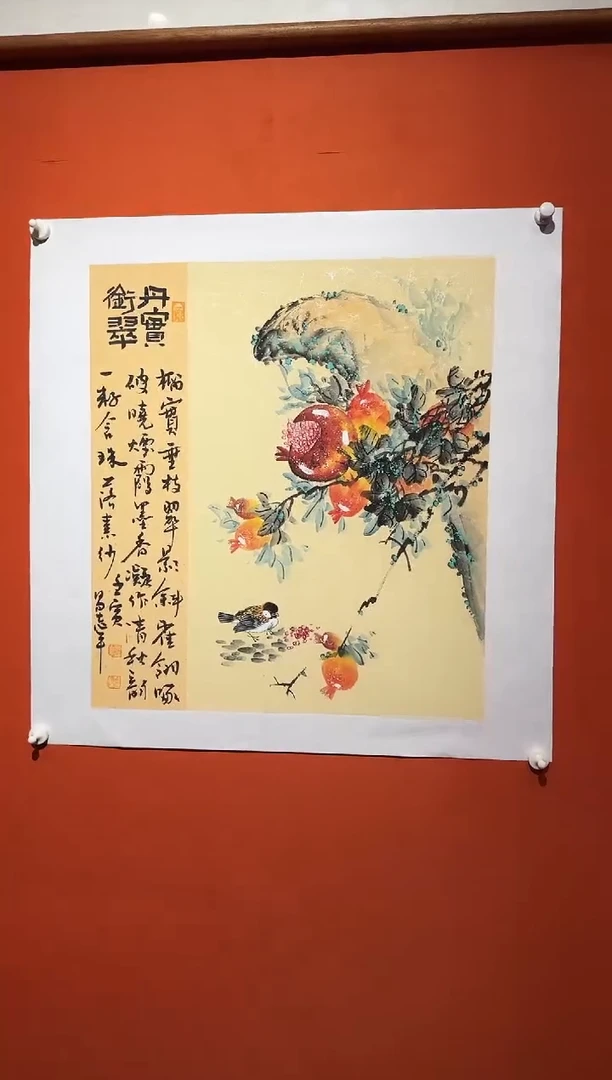 丹實
銜翠
榴實垂枝翠影斜雀翎啄
破曉煙霞墨香凝作清秋韵
一籽含珠落素纱
壬寅